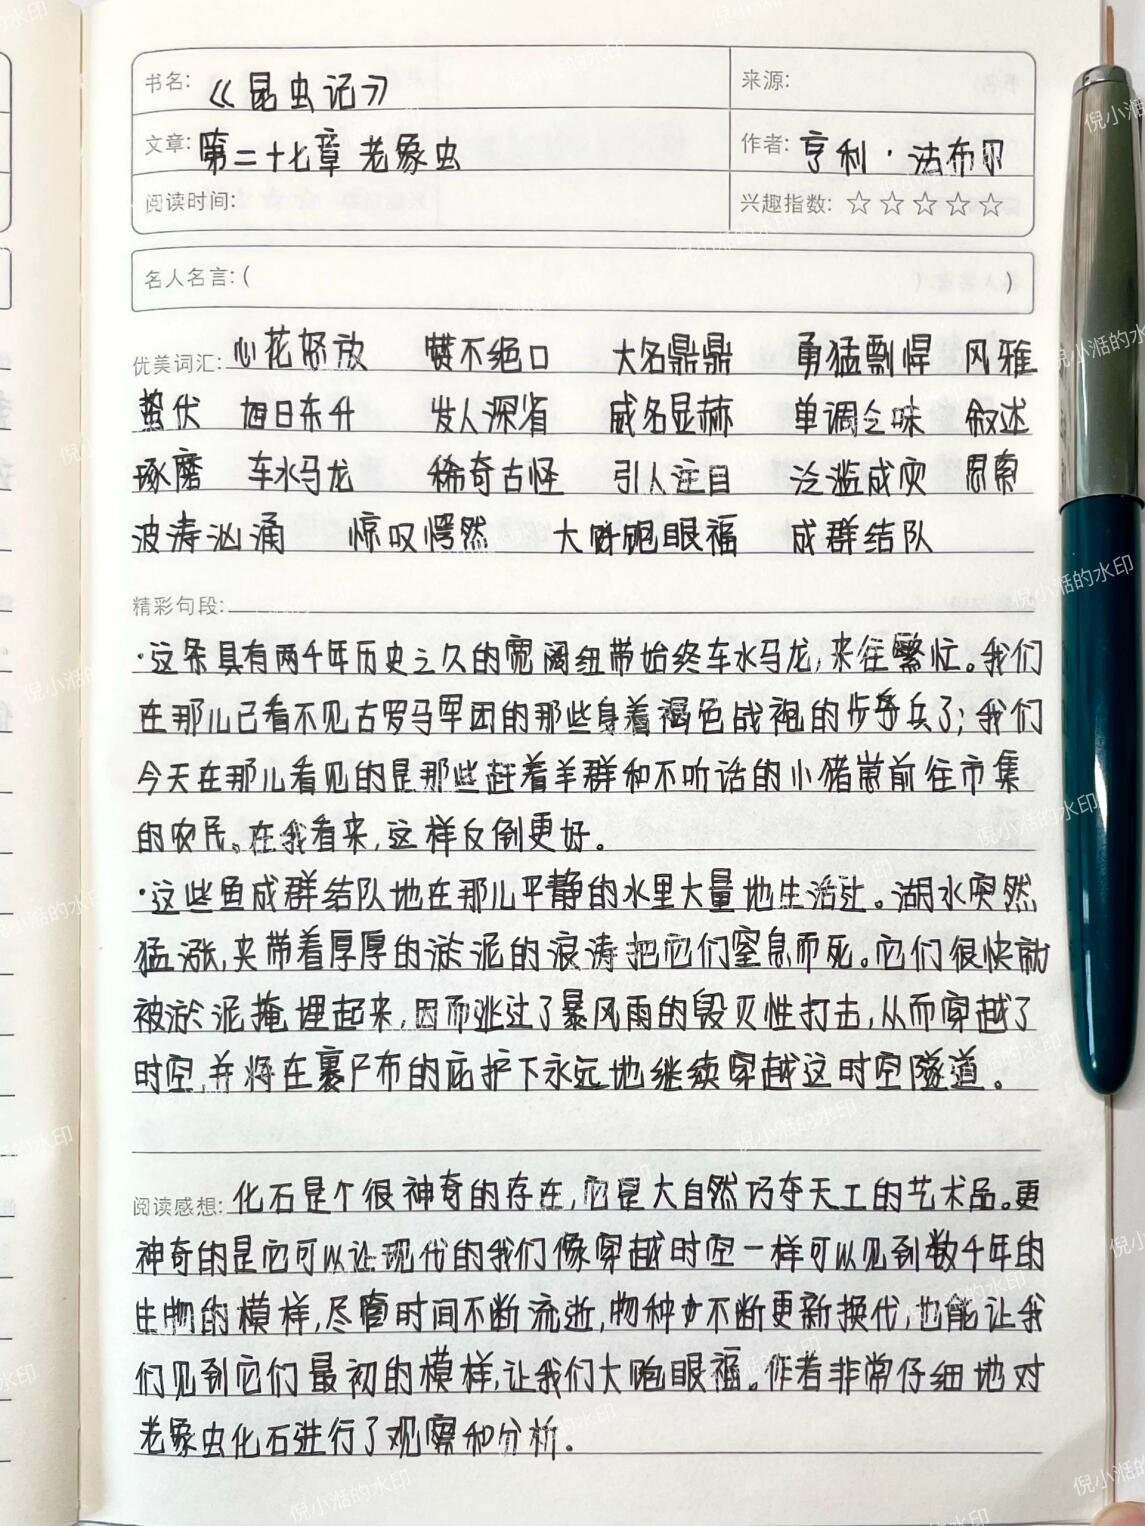 书名: 《昆虫记》 来源:
文章: 第二十七章 老象虫 作者: 亨利·法布尔
阅读时间: 兴趣指数: ☆☆☆☆☆
名人名言: ( )
优美词汇: 心花怒放 赞不绝口 大名鼎鼎 勇猛剽悍 风雅
蛰伏 旭日东升 发人深省 威名显赫 单调乏味 叙述
琢磨 车水马龙 稀奇古怪 引人注目 泛滥成灾 思索
波涛汹涌 惊叹愕然 大饱眼福 成群结队
精彩句段:
·这条具有两千年历史之久的宽阔纽带始终车水马龙,来往繁忙。我们
在那儿已看不见古罗马军团的那些身着褐色战袍的步兵了;我们
今天在那儿看见的是那些赶着羊群和不听话的小猪崽前往市集
的农民。在我看来,这样反倒更好。
·这些鱼成群结队地在那儿平静的水里大量地生活过。湖水突然
猛涨,夹带着厚厚的淤泥的浪涛把它们窒息而死。它们很快就
被淤泥掩埋起来,因而逃过了暴风雨的毁灭性打击,从而穿越了
时空,并将在裹尸布的庇护下永远地继续穿越这时空隧道。
阅读感想: 化石是个很神奇的存在,它是大自然巧夺天工的艺术品。更
神奇的是它可以让现代的我们像穿越时空一样可以见到数千年的
生物的模样,尽管时间不断流逝,物种也不断更新换代,也能让我
们见到它们最初的模样,让我们大饱眼福。作者非常仔细地对
老象虫化石进行了观察和分析。
倪小湉的水印